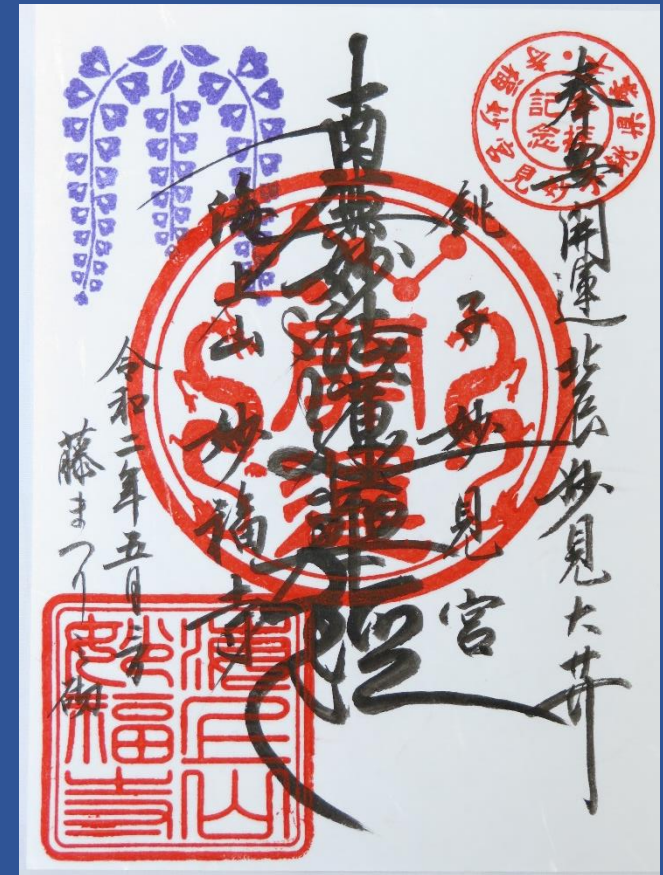 奉安開運北辰妙見大菩薩
銚子妙見宮
南無妙法蓮華経
海上山妙福寺
令和二年五月三日
藤まつり砌
開運
記念
海上山
妙福寺